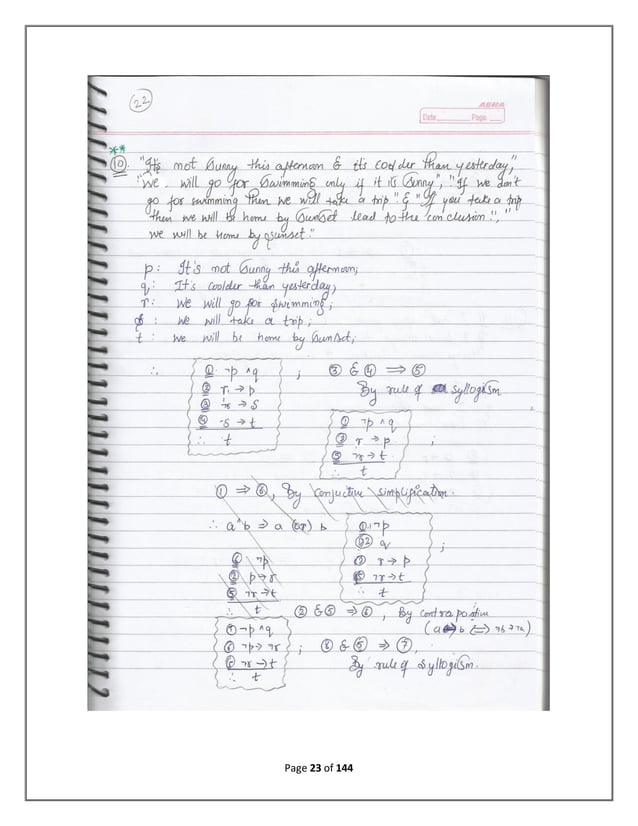 22
ABHA
Date Page
**
10. "It's not Sunny this afternoon & it's coolder than yesterday",
"We will go for Swimming only if it is Sunny", "If we don't
go for swimming then we will take a trip" & "If you take a trip
then we will be home by Sunset lead to the conclusion",
we will be home by sunset."
p: It's not Sunny this afternoon;
q: It's coolder than yesterday,
r: we will go for swimming;
s: we will take a trip;
t: we will be home by sunset;
∴ ① ¬p ∧ q ; ③ & ④ ⟹ ⑤
② r → p By rule of syllogism
③ ¬r → s
④ s → t
∴ t
① ¬p ∧ q
② r → p ;
⑤ ¬r → t
∴ t
① ⟹ ⑥, By conjuctive simplification.
∴ a ^ b ⇒ a (or) b
① ¬p
② q ;
② r → p
⑤ ¬r → t
∴ t
⑥ ¬p
② p → r
⑤ ¬r → t
∴ t
② & ⑤ ⟹ ⑥, By contrapositive
(a → b ⟺ ¬b → ¬a)
① ¬p ∧ q
⑥ ¬p → ¬r ; ⑥ & ⑤ ⟹ ⑦,
⑤ ¬r → t By rule of syllogism.
∴ t
Page 23 of 144